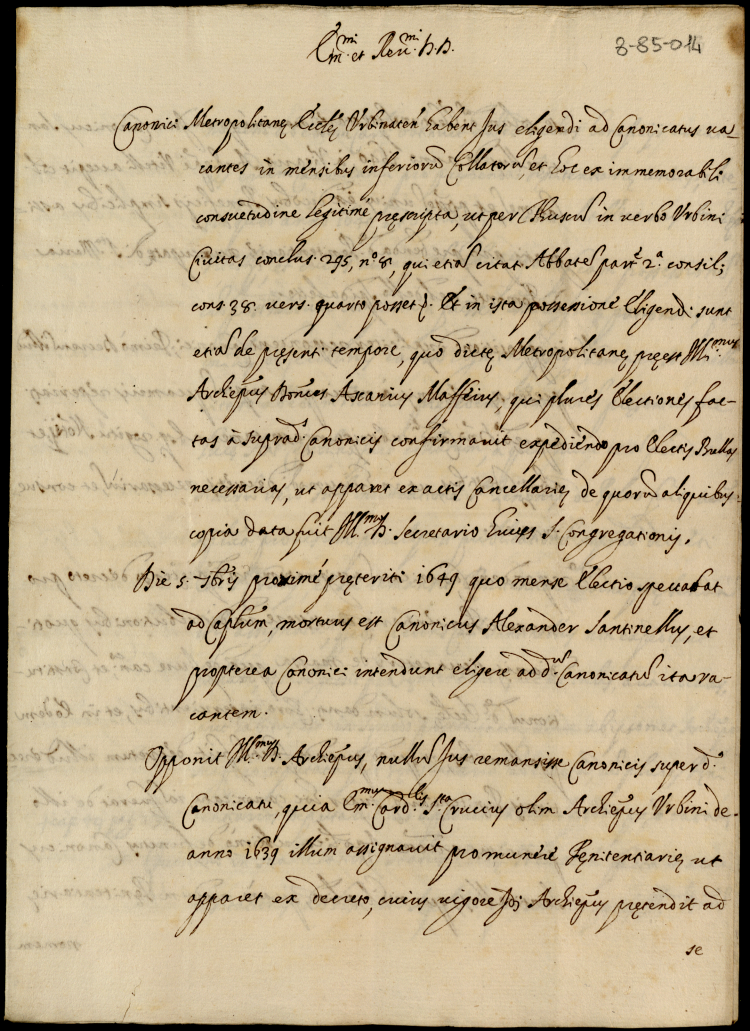 8-85-014
Em.mi et Reu.mi D.D.
Canonici Metropolitanę Eccłę Vrbinateñ habent Jus eligendi ad Canonicatus va_
cantes in mensibus inferiorũ Collatorũ, et hoc ex immemorabili
consuetudine legitimè pręscripta, ut per Rhusciũ in verbo Vrbini
Ciuitas conclus. 295, n.o 8, qui etiã citat Abbatẽ part.e 2.a consil.
cons. 38. vers. quarto posset. Et in ista possessione Eligendi sunt
etiã de pręsenti tempore, quo dictę Metropolitanę pręest Ill.mus
Archiepũs Ascanius Maffeius, qui plures Electiones fac_
tas à suprad.s Canonicis confirmauit expediendo pro Electis Bullas
necessarias, ut apparet ex actis Cancellarię de quorũ aliquibus
copia data fuit Ill.mo D. Secretario S. Congregationis.
Die 5. 7bris proximè pręteriti 1649 quo mense Electio spectabat
ad Caplũm, mortuus est Canonicus Alexander Santinellus, et
propterea Canonici intendunt eligere ad d.um Canonicatũ ita va_
cantem.
Opponit Ill.mus D. Archiepũs, nullũ Jus remansisse Canonicis super d.o
Canonicatu, quia Em.mus Card.lis S.ta Crucius olim Archiepũs Vrbini de
anno 1639 illum assignauit pro munere Pęnitentiarię ut
apparet ex decreto, cuius uigore Archiepũs prętendit ad
se